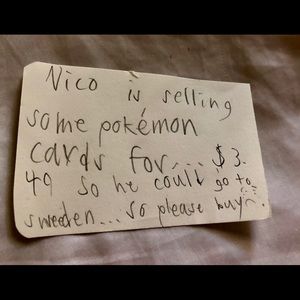 Nico is selling
some pokémon
cards for... $3.
49 so he could go to
sweden... so please buy